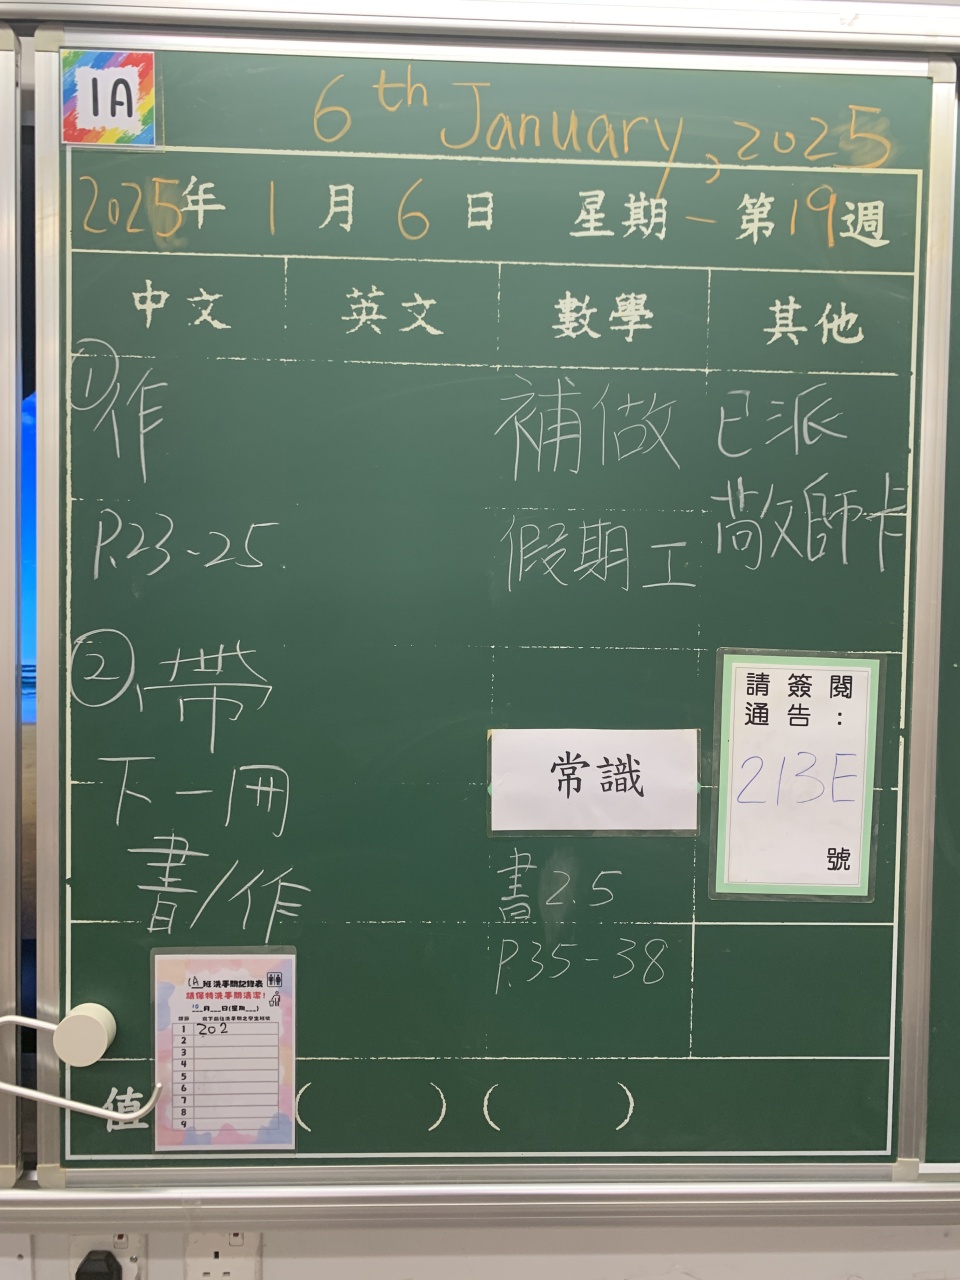 1A
6th January, 2025
2025年 1月 6日 星期一 第19週
中文 英文 數學 其他
①作
P.23-25
②帶
下一冊
書/作
補做
假期工
常識
書2.5
P.35-38
已派
敬師卡
請簽閱
通告：
213E
號
1A班洗手間記錄表
請保持洗手間清潔！
10月___日(星期___)
1 202
2
3
4
5
6
7
8
9
值 ( ) ( )